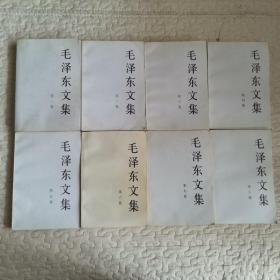 毛泽东文集
毛泽东文集
毛泽东文集
毛泽东文集
第四卷
毛泽东文集
第五卷
毛泽东文集
第六卷
毛泽东文集
第七卷
毛泽东文集
第八卷